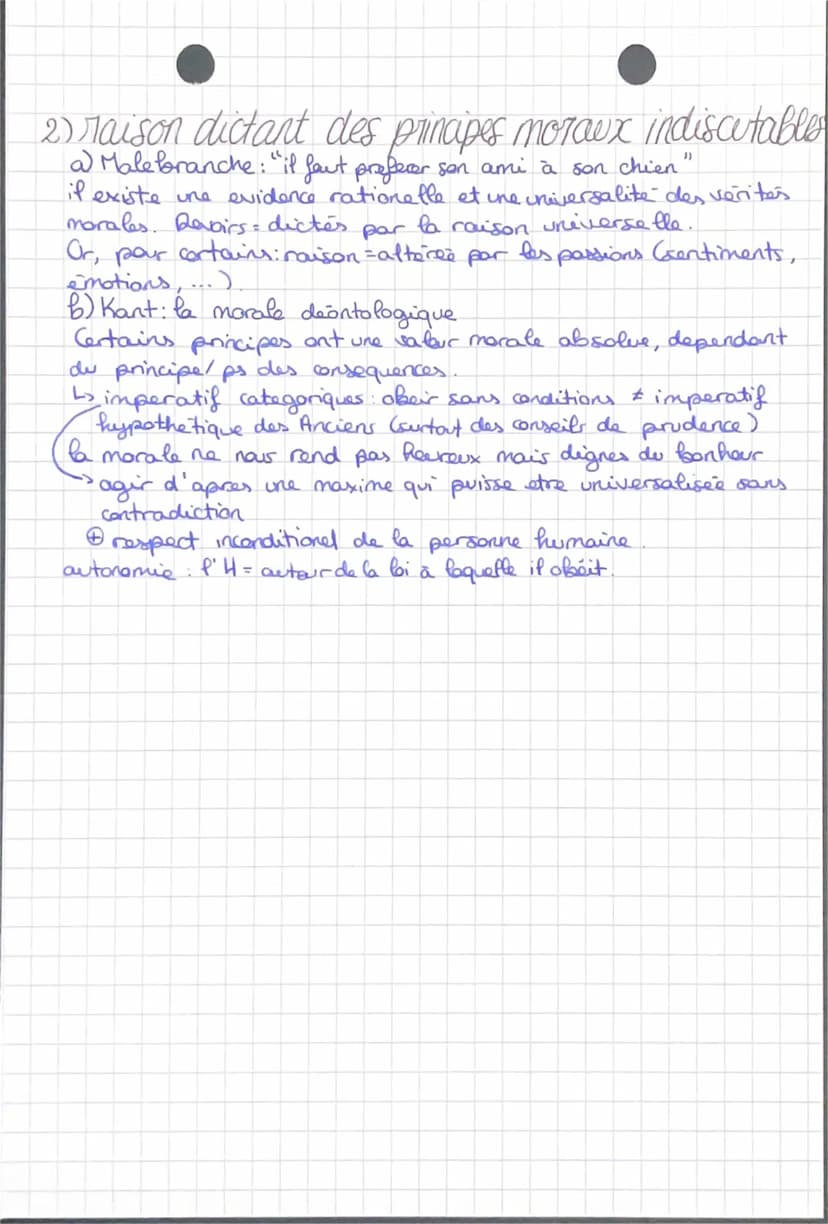 2) raison dictant des principes moraux indiscutables
a) Malebranche : "il faut préferer son ami à son chien"
il existe une evidence rationelle et une universalité des vérités
morales. Devoirs = dictés par la raison universelle.
Or, pour certains : raison = altérée par les passions (sentiments,
émotions, ...)
b) Kant : la morale déontologique
Certains principes ont une valeur morale absolue, dependant
du principe / ps des consequences.
↳ imperatif categoriques : obeir sans conditions ≠ imperatif
hypothétique des Anciens (surtout des conseils de prudence)
la morale ne nous rend pas heureux mais dignes du bonheur
→ agir d'apres une maxime qui puisse etre universalisée sans
contradiction
⊕ respect inconditionel de la personne humaine.
autonomie : l'H = auteur de la loi à laquelle il obéit.